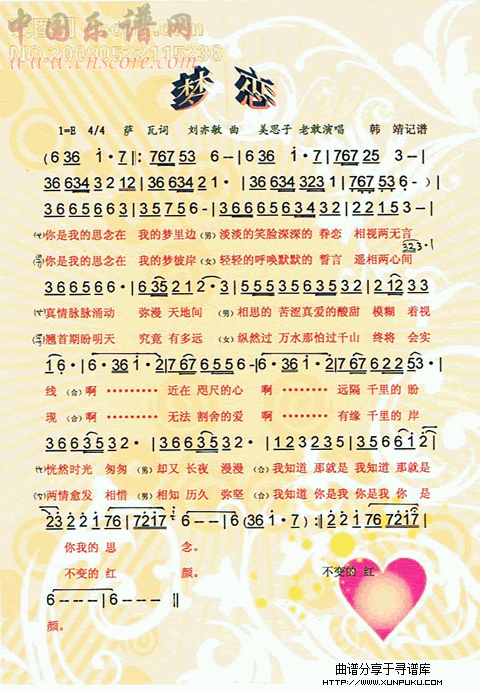 中国乐谱网
NO.20090522115236
www.cnscore.com
梦 恋
1=E 4/4 萨 瓦词 刘亦敏 曲 美思子 老敢演唱 韩 靖记谱
(6 36 i·7|: 767 53 6-|6 36 i·7|767 25 3|
36 634 3 2 12|36 634 2 1·|36 634 323 1|767 5 6 -)|
3 6 6 5 6 6 3|3 5 7 5 6 -|3 6 6 5 6 6 3 4|3 2 2 1 5 3 -|
(女)你是我的思念在 我的梦里边 (男)淡淡的笑脸深深的 眷恋 相视两无言
(男)你是我的思念在 我的梦彼岸 (女)轻轻的呼唤默默的 誓言 遥相两心间
真情脉脉涌动 弥漫 天地间 (男)相思的 苦涩真爱的酸甜 模糊 着视
翘首期盼明天 究竟 有多远 (女)纵然过 万水那怕过千山 终将 会实
线 (合)啊 ········· 近在 咫尺的心 啊 ········· 远隔 千里的 盼
现 (合)啊 ········· 无法 割舍的爱 啊 ········· 有缘 千里的 岸
3 6 6 3 5 3 2·|3 6 6 3 5 3 2·|1 2 3 2 3 5|3 5 6 i 2|
(女)恍然时光 匆匆 (男)却又 长夜 漫漫 (合)我知道 那就是 我知道 那就是
(女)两情愈发 相惜 (男)相知 历久 弥坚 (合)我知道 你是我 你是我 你 是
你我的 思 念。
不变的 红 颜。 不变的 红
6 - - -|6 - - -‖
颜。
曲谱分享于寻谱库
HTTP://WWW.XUNPUKU.COM